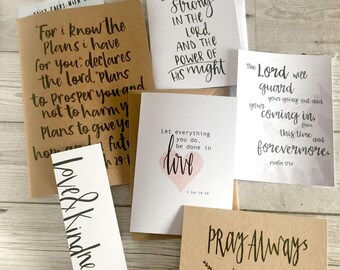 "For i know the
Plans i have
for you; declares
the Lord, "Plans
to Prosper you and
not to harm
Plans to give you
hope
29:11
strong
in the
LORD,
AND THE
POWER OF
his might
The Lord will
guard
your going out and
your coming in,
from
this time and
forevermore.
psalm 121:8
Let everything
you do,
be done in
love
1 Cor 16:14
Love & Kindne
Pray Always